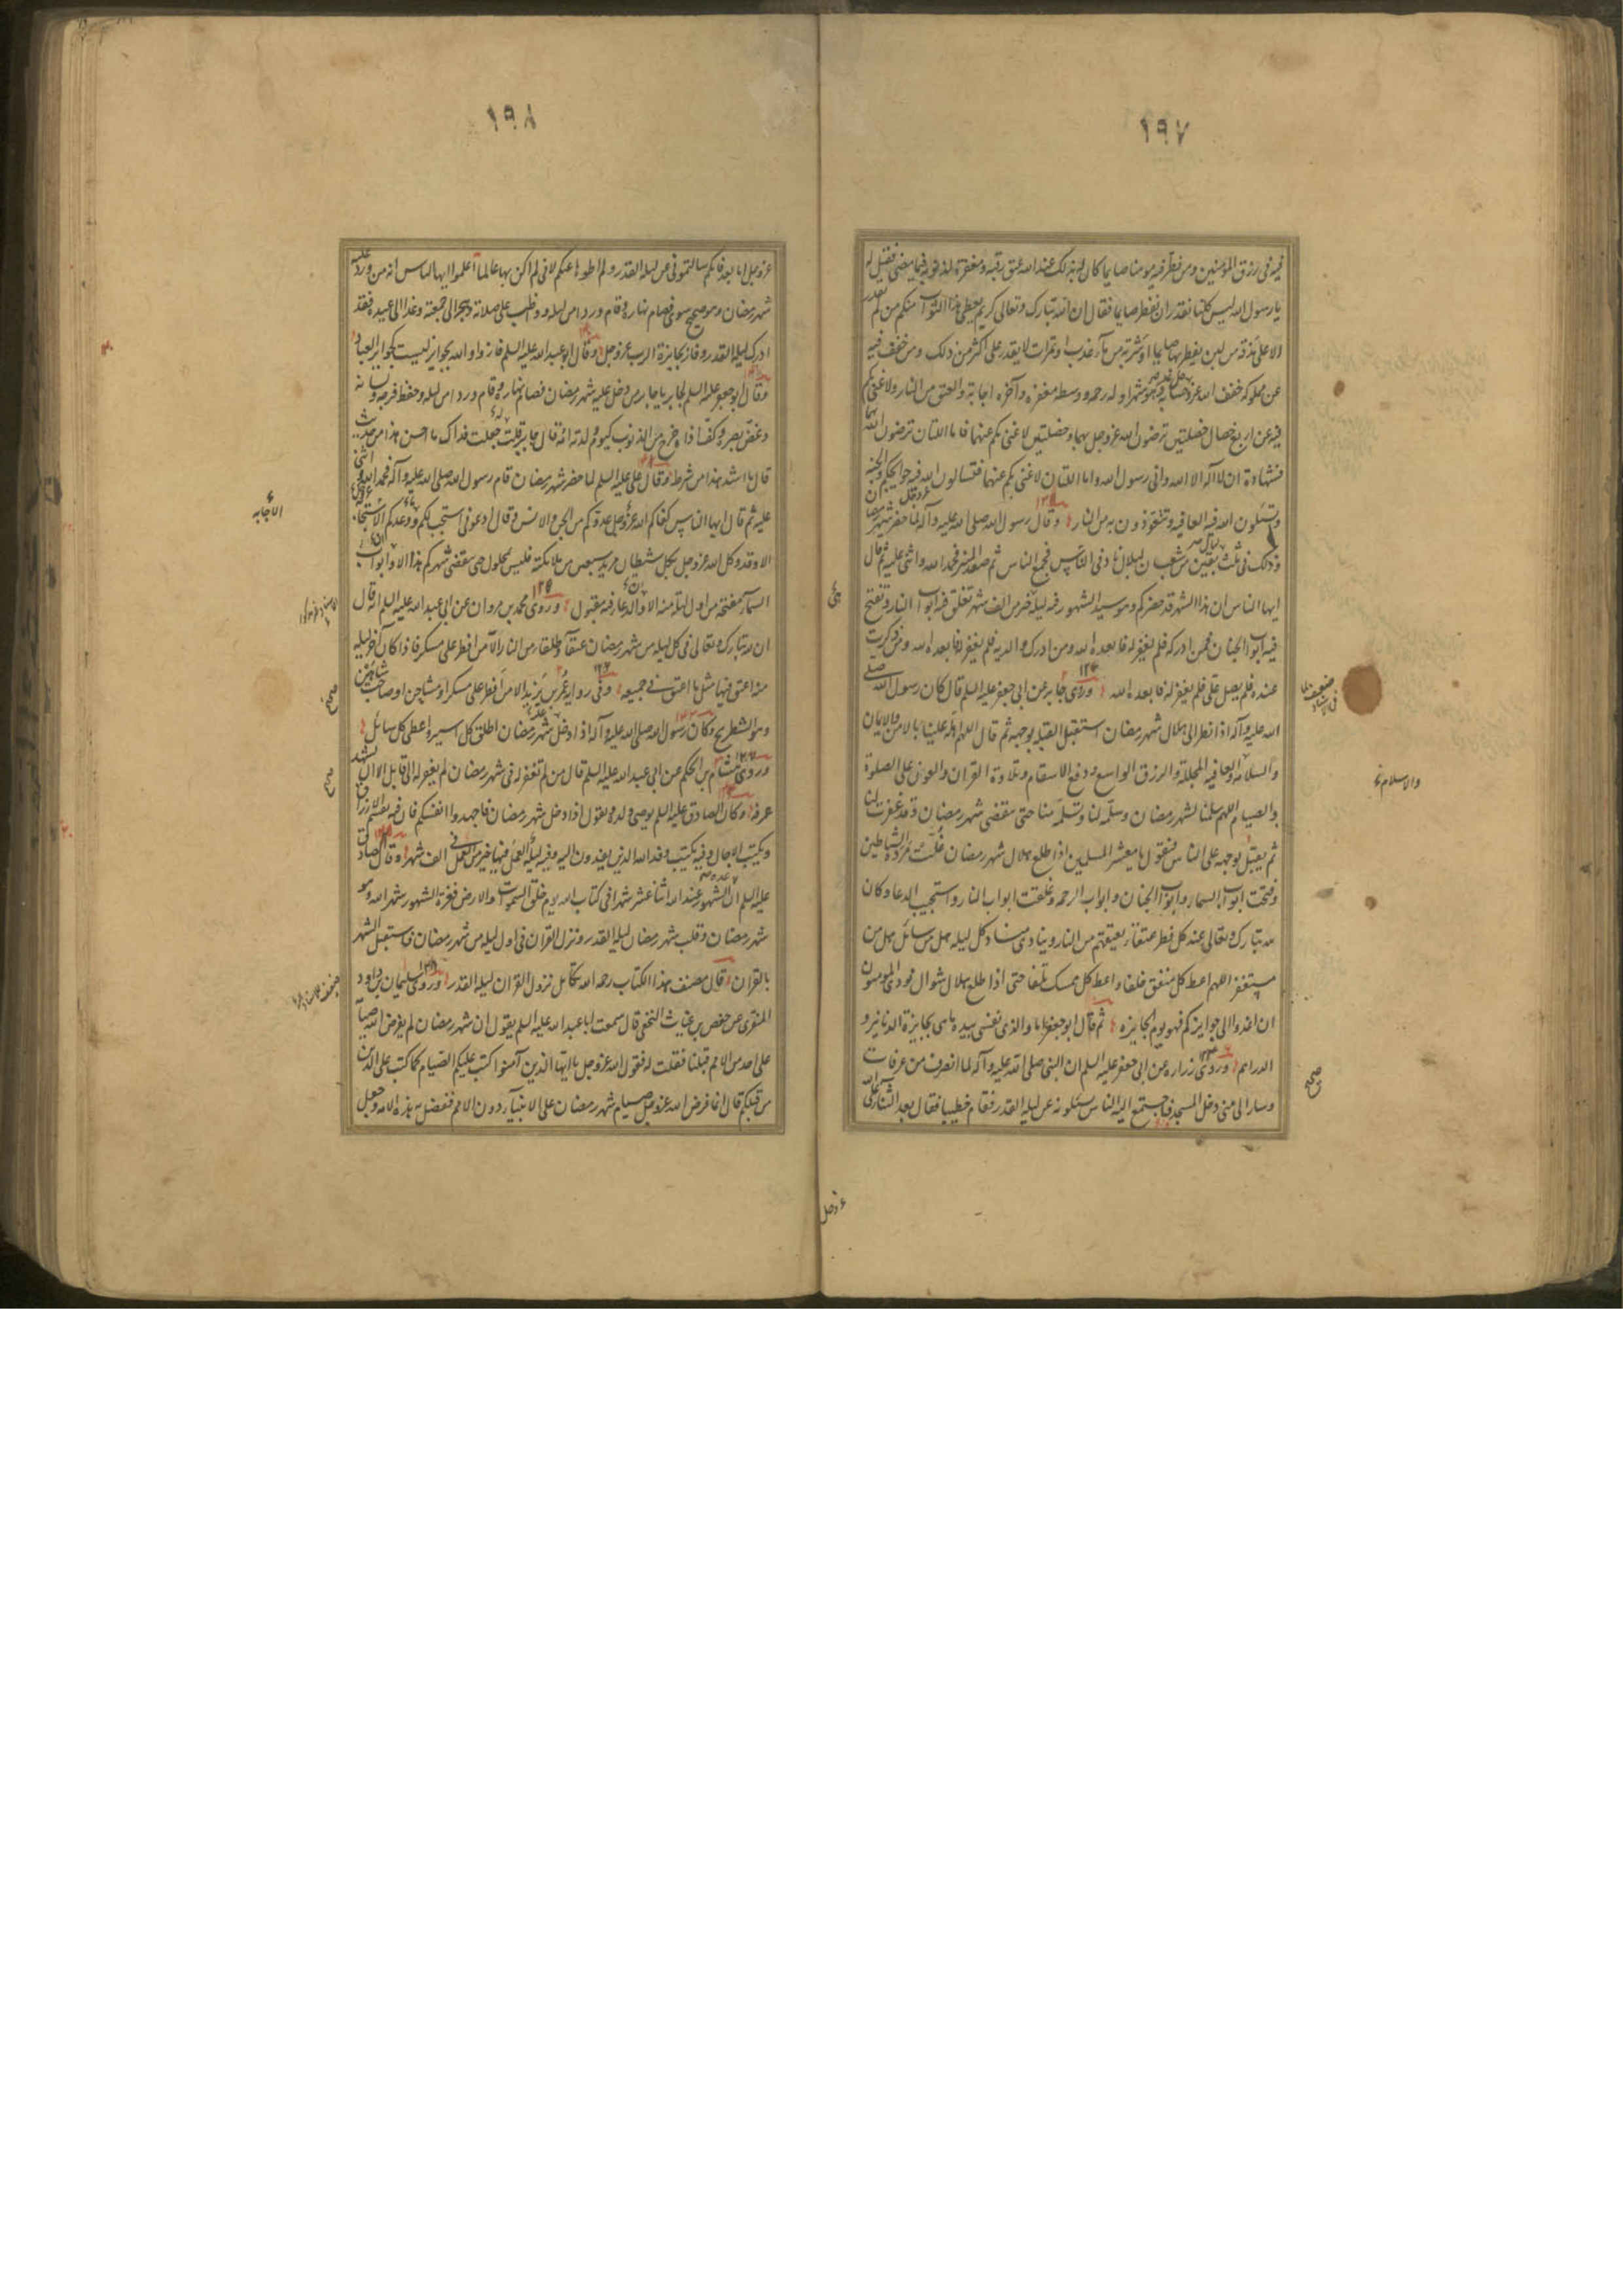 ١٩٧
فيه في رزق المؤمنين ومن فطر فيه مومنا صايما كان له بذلك عند الله عتق رقبة ومغفرة لذنوبه فيما مضى فقيل له
يا رسول الله ليس كلنا نقدر ان نفطر صايما فقال ان الله تبارك وتعالى كريم يعطي هذا الثواب منكم من لم يقدر
الا على مذقة من لبن يفطر بها صايما او شربة من ماء عذب او تمرات لا يقدر على اكثر من ذلك ومن خفف فيه
عن مملوكه خفف الله عز وجل حسابه وهو شهر اوله رحمة ووسطه مغفرة وآخره اجابة والعتق من النار ولا غنى بكم
فيه عن اربع خصال خصلتين ترضون الله عز وجل بهما وخصلتين لا غنى بكم عنهما فاما اللتان ترضون الله بهما
فشهادة ان لا اله الا الله واني رسول الله واما اللتان لا غنى بكم عنهما فتسالون الله فيه حوايجكم والجنة
وتسئلون الله فيه العافية وتتعوذون به من النار وقال رسول الله صلى الله عليه وآله لما حضر شهر رمضان
وذلك في ثلث بقين من شعبان لبلال ناد في الناس فجمع الناس ثم صعد المنبر فحمد الله واثنى عليه ثم قال
ايها الناس ان هذا الشهر قد حضركم وهو سيد الشهور فيه ليلة خير من الف شهر تغلق فيه ابواب النار وتفتح
فيه ابواب الجنان فمن ادركه فلم يغفر له فابعده الله ومن ادرك والديه فلم يغفر له فابعده الله ومن ذكرت
عنده فلم يصل علي فلم يغفر له فابعده الله وروى جابر عن ابي جعفر عليه السلم قال كان رسول الله صلى
الله عليه وآله اذا نظر الى هلال شهر رمضان استقبل القبلة بوجهه ثم قال اللهم اهله علينا بالامن والايمان
والسلامة والعافية المجللة والرزق الواسع ودفع الاسقام وتلاوة القران والعون على الصلوة
والصيام اللهم سلمنا لشهر رمضان وسلمه لنا وتسلمه منا حتى ينقضي شهر رمضان وقد غفرت لنا
ثم يقبل بوجهه على الناس فيقول يا معشر المسلمين اذا طلع هلال شهر رمضان غلت مردة الشياطين
وفتحت ابواب السماء وابواب الجنان وابواب الرحمة وغلقت ابواب النار واستجيب الدعا وكان
لله تبارك وتعالى عند كل فطر عتقاء يعتقهم من النار وينادي مناد كل ليلة هل من سائل هل من
مستغفر اللهم اعط كل منفق خلفا واعط كل ممسك تلفا حتى اذا طلع هلال شوال نودي المومنون
ان اغدوا الى جوايزكم فهو يوم الجايزة ثم قال ابو جعفر اما والذي نفسي بيده ما هي بجايزة الدنانير و
الدراهم وروى زرارة عن ابي جعفر عليه السلم ان النبي صلى الله عليه وآله لما انصرف من عرفات
وسار الى منى دخل المسجد فاجتمع اليه الناس يسئلونه عن ليلة القدر فقام خطيبا فقال بعد الثناء على الله
والاسلام
صحيح
عز وجل
١٩٨
عز وجل اما بعد فانكم سالتموني عن ليلة القدر ولم اطوها عنكم لاني لم اكن بها عالما اعلموا ايها الناس انه من ورد عليه
شهر رمضان وهو صحيح سوي فصام نهاره وقام وردا من ليله وواظب على صلاته وهجر الى جمعته وغدا الى عيده فقد
ادرك ليلة القدر وفاز بجايزة الرب عز وجل وقال ابو عبد الله عليه السلم فازوا والله بجوايز ليست كجوايز العباد
وقال ابو جعفر عليه السلم لجابر يا جابر من دخل عليه شهر رمضان فصام نهاره وقام وردا من ليله وحفظ فرجه ولسانه
وغض بصره وكف اذاه خرج من الذنوب كيوم ولدته امه قال جابر قلت له جعلت فداك ما احسن هذا من حديث
قال ما اشد هذا من شرط وقال علي عليه السلم لما حضر شهر رمضان قام رسول الله صلى الله عليه وآله فحمد الله واثنى
عليه ثم قال ايها الناس كفاكم الله عز وجل عدوكم من الجن والانس وقال ادعوني استجب لكم ووعدكم الاستجابة
الا وقد وكل الله عز وجل بكل شيطان مريد سبعين من ملائكته فليس بمحلول حتى ينقضي شهركم هذا الا وابواب
السماء مفتحة من اول ليلة منه الا والدعاء فيه مقبول وروى محمد بن مروان عن ابي عبد الله عليه السلم انه قال
ان لله تبارك وتعالى في كل ليلة من شهر رمضان عتقاء وطلقاء من النار الا من افطر على مسكر فاذا كان آخر ليلة
منه اعتق فيها مثل ما اعتق في جميعه وفي رواية عمر بن يزيد الا من افطر على مسكر او مشاحن او صاحب شاهين
وهو الشطرنج وكان رسول الله صلى الله عليه وآله اذا دخل شهر رمضان اطلق كل اسير واعطى كل سائل
وروى هشام بن الحكم عن ابي عبد الله عليه السلم قال من لم يغفر له في شهر رمضان لم يغفر له الى قابل الا ان يشهد
عرفة وكان الصادق عليه السلم يوصي ولده ويقول اذا دخل شهر رمضان فاجهدوا انفسكم فان فيه تقسم الارزاق
وتكتب الاجال وفيه يكتب وفد الله الذين يفدون اليه وفيه ليلة العمل فيها خير من العمل في الف شهر وقال الصادق
عليه السلم ان عدة الشهور عند الله اثنا عشر شهرا في كتاب الله يوم خلق السموات والارض فغرة الشهور شهر الله وهو
شهر رمضان وقلب شهر رمضان ليلة القدر ونزل القران في اول ليلة من شهر رمضان فاستقبل الشهر
بالقران قال مصنف هذا الكتاب رحمه الله تكامل نزول القران ليلة القدر وروى سليمان بن داود
المنقري عن حفص بن غياث النخعي قال سمعت ابا عبد الله عليه السلم يقول ان شهر رمضان لم يفرض الله صيامه
على احد من الامم قبلنا فقلت له فقول الله عز وجل يا ايها الذين آمنوا كتب عليكم الصيام كما كتب على الذين
من قبلكم قال انما فرض الله عز وجل صيام شهر رمضان على الانبياء دون الامم ففضل به هذه الامة وجعل
الاجابه
صحيح